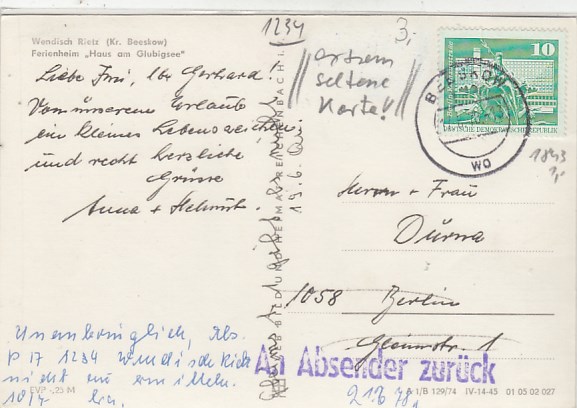 1234
3,-
Wendisch Rietz (Kr. Beeskow)
Ferienheim „Haus am Glubigsee"
extrem
seltene
Karte!
10
DEUTSCHE DEMOKRATISCHE REPUBLIK
BEESKOW
wo
1843
1,-
Liebe Irmi, lbr Gerhard!
Von unserem Urlaub
ein kleines Lebenszeichen
und recht herzliche
Grüsse
Anna + Helmut.
Herrn + Frau
1058 Berlin
Gleimstr. 1
Unanbringlich, Abs.
P 17 1234 Wendisch Rietz
nicht zu ermitteln.
18/7
An Absender zurück
21678,
EVP -,25 M
A 1/B 129/74 IV-14-45 01 05 02 027